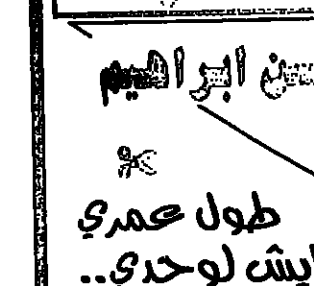 ابراهيم
طول عمري
لوحدي..